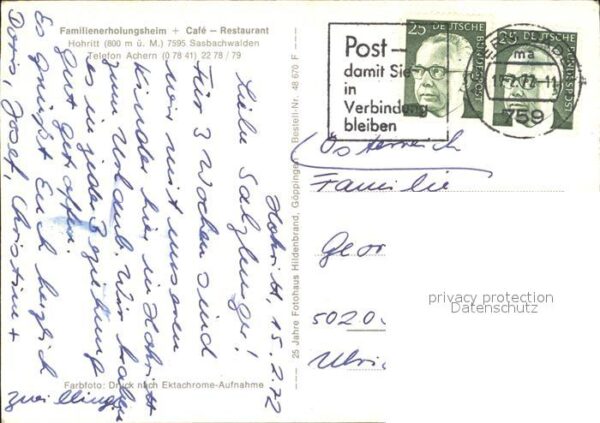 Familienerholungsheim + Café – Restaurant
Hohritt (800 m ü. M.) 7595 Sasbachwalden
Telefon Achern (0 78 41) 22 78 / 79
Hohritt, 15.2.72
Liebe Salzburger!
Für 3 Wochen sind
wir mit unseren
Kinder hier in Hohritt
zum Urlaub. Wir haben
es in jeder Beziehung
gut getroffen.
Es grüßt Euch herzlich
Doris, Josef, Christine +
zwillinge
Farbfoto: Druck nach Ektachrome-Aufnahme
25 Jahre Fotohaus Hildenbrand, Göppingen · Bestell-Nr. 48 679 F
Post –
damit Sie
in
Verbindung
bleiben
25 DEUTSCHE BUNDESPOST
25 DEUTSCHE BUNDESPOST
ma
-2.72-11
759
Österreich
Familie
Geor
5020
Ulric
privacy protection
Datenschutz